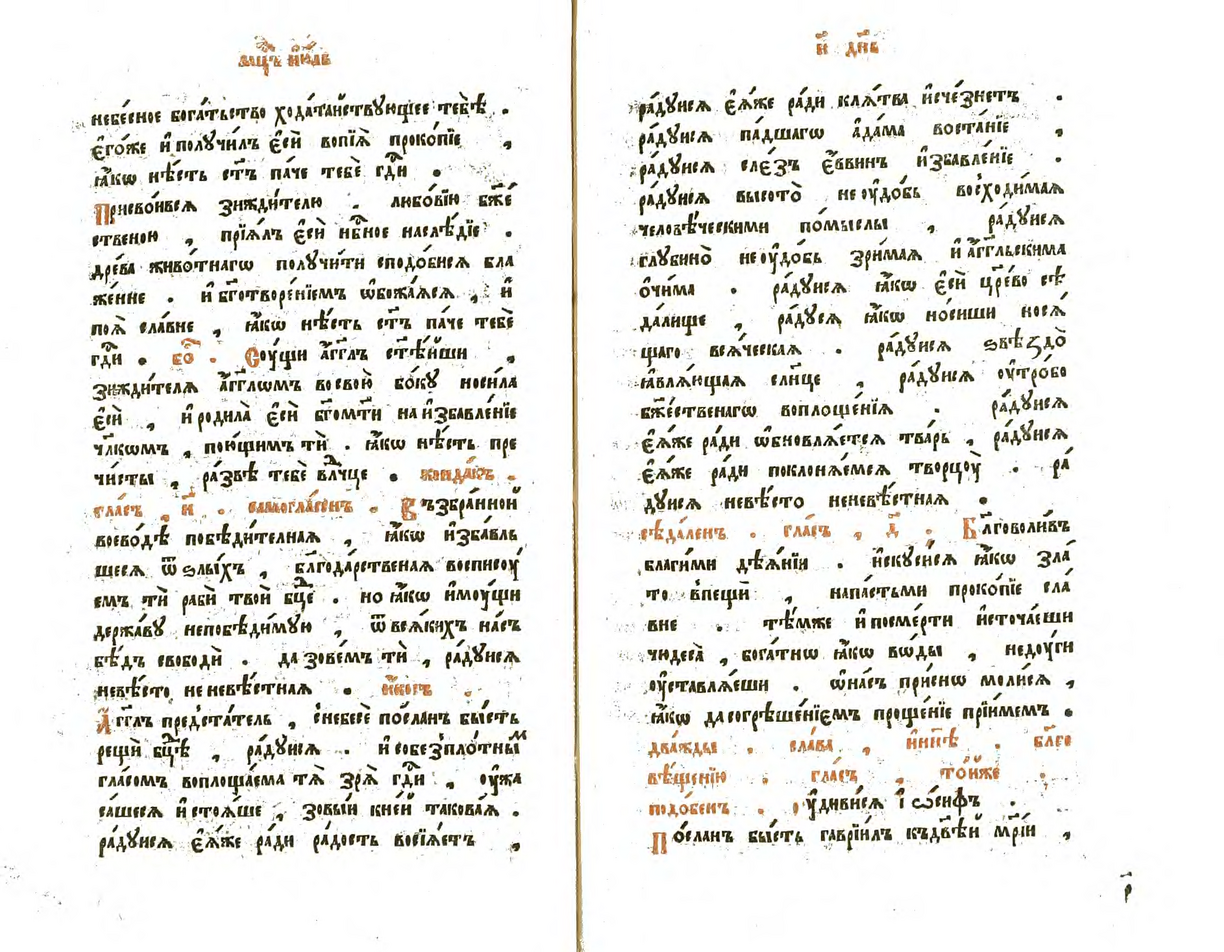 мцⷭ҇ъ і҆ю́лѧ
небе́сное бога́тьство ходата́йствꙋющее тебѣ̀ .
є҆го́же и҆ получи́лъ є҆сѝ вопїѧ̀ проко́пїе ,
ꙗ҆́кѡ нѣ́сть ст҃ъ па́че тебѐ гдⷭ҇и .
Присво́ивсѧ зижди́телю . любо́вїю бж҃е́
ственою , прїѧ́лъ є҆сѝ нбⷭ҇ное наслѣ́дїе .
дре́ва живо́тнагѡ получи́ти сподо́бисѧ бла
же́нне . и҆ бг҃отворе́нїемъ ѡ҆божа́ѧсѧ , и҆
поѧ̀ сла́вне , ꙗ҆́кѡ нѣ́сть ст҃ъ па́че тебѐ
гдⷭ҇и . бо҇ . Сꙋ́щи а҆́гг҃лъ ст҃ѣ́йши ,
зижди́телѧ а҆́гг҃лѡмъ восвое́ю бо́кꙋ носи́ла
є҆сѝ , и҆ родила̀ є҆сѝ бг҃ом҃ти на и҆збавле́нїе
чл҃кѡмъ , пою́щимъ тѝ . ꙗ҆́кѡ нѣ́сть пре
чи́сты , ра́звѣ тебѐ влⷣчце . конда́къ .
гла́съ , и҃ . самогла́сенъ . Възбра́нной
воево́дѣ побѣди́телнаѧ , ꙗ҆́кѡ и҆зба́вль
шесѧ ѿ ѕлы́хъ , блг҃ода́рственаѧ восписꙋ́
емъ тѝ рабѝ твоѝ бцⷣе . но ꙗ҆́кѡ и҆мꙋ́щи
держа́вꙋ непобѣди́мꙋю , ѿ всѧ́кихъ на́съ
бѣ́дъ свободѝ . да зове́мъ тѝ , ра́дꙋисѧ
невѣ́сто неневѣ́стнаѧ . и҆́косъ .
А҆́гг҃лъ предста́тель , снебесѐ по́сланъ бы́сть
рещѝ бцⷣѣ , ра́дꙋисѧ . и҆ собезпло́тныⷨ
гла́сомъ воплоща́ема тѧ̀ зрѧ̀ гдⷭ҇и , ᲂу҆жа
са́шесѧ и҆ стоѧ́ше , зовы́й кне́й такова́ѧ .
ра́дꙋисѧ є҆ѧ́же ра́ди ра́дость восїѧ́етъ ,
и҃ дн҃ь
ра́дꙋисѧ є҆ѧ́же ра́ди клѧ́тва и҆сче́знетъ .
ра́дꙋисѧ па́дшагѡ а҆да́ма воста́нїе ,
ра́дꙋисѧ сле́зъ є҆́ввинъ и҆збавле́нїе .
ра́дꙋисѧ высото̀ неᲂу҆до́бь восходи́маѧ
человѣ́ческими по́мыслы , ра́дꙋисѧ
глꙋбино̀ неᲂу҆до́бь зри́маѧ и҆ а҆́гг҃льскима
о҆чи́ма . ра́дꙋисѧ ꙗ҆́кѡ є҆сѝ цр҃ево сѣ
да́лище , ра́дꙋсѧ ꙗ҆́кѡ но́сиши носѧ́
щаго всѧ́ческаѧ . ра́дꙋисѧ ѕвѣздо̀
ꙗ҆влѧ́ющаѧ слн҃це , ра́дꙋисѧ ᲂу҆тро́бо
бж҃е́ственагѡ воплоще́нїѧ . ра́дꙋисѧ
є҆ѧ́же ра́ди ѡ҆бновлѧ́етсѧ тва́рь , ра́дꙋисѧ
є҆ѧ́же ра́ди поклонѧ́емсѧ творцꙋ̀ . ра́
дꙋисѧ невѣ́сто неневѣ́стнаѧ .
сѣда́ленъ . гла́съ , д҃ . Блг҃оволи́въ
благи́ми дѣѧ́нїи . и҆скꙋси́сѧ ꙗ҆́кѡ зла́
то впещѝ , напа́стьми проко́пїе сла́
вне . тѣ́мже и҆ посме́рти и҆сточа́еши
чюдеса̀ , бога́тнѡ ꙗ҆́кѡ во́ды , недꙋ́ги
ᲂу҆ставлѧ́еши . ѡ҆на́съ при́снѡ моли́сѧ ,
ꙗ҆́кѡ да согрѣше́нїємъ проще́нїе прїи́мемъ .
два́жды . сла́ва , и҆ нн҃ѣ . блг҃о
вѣ́щенїю . гла́съ , то́йже .
подо́бенъ . ᲂу҆диви́сѧ і҆ѡ́сифъ .
По́сланъ бы́сть гаврїи́лъ къдв҃ѣй мр҃і́и ,
р҃